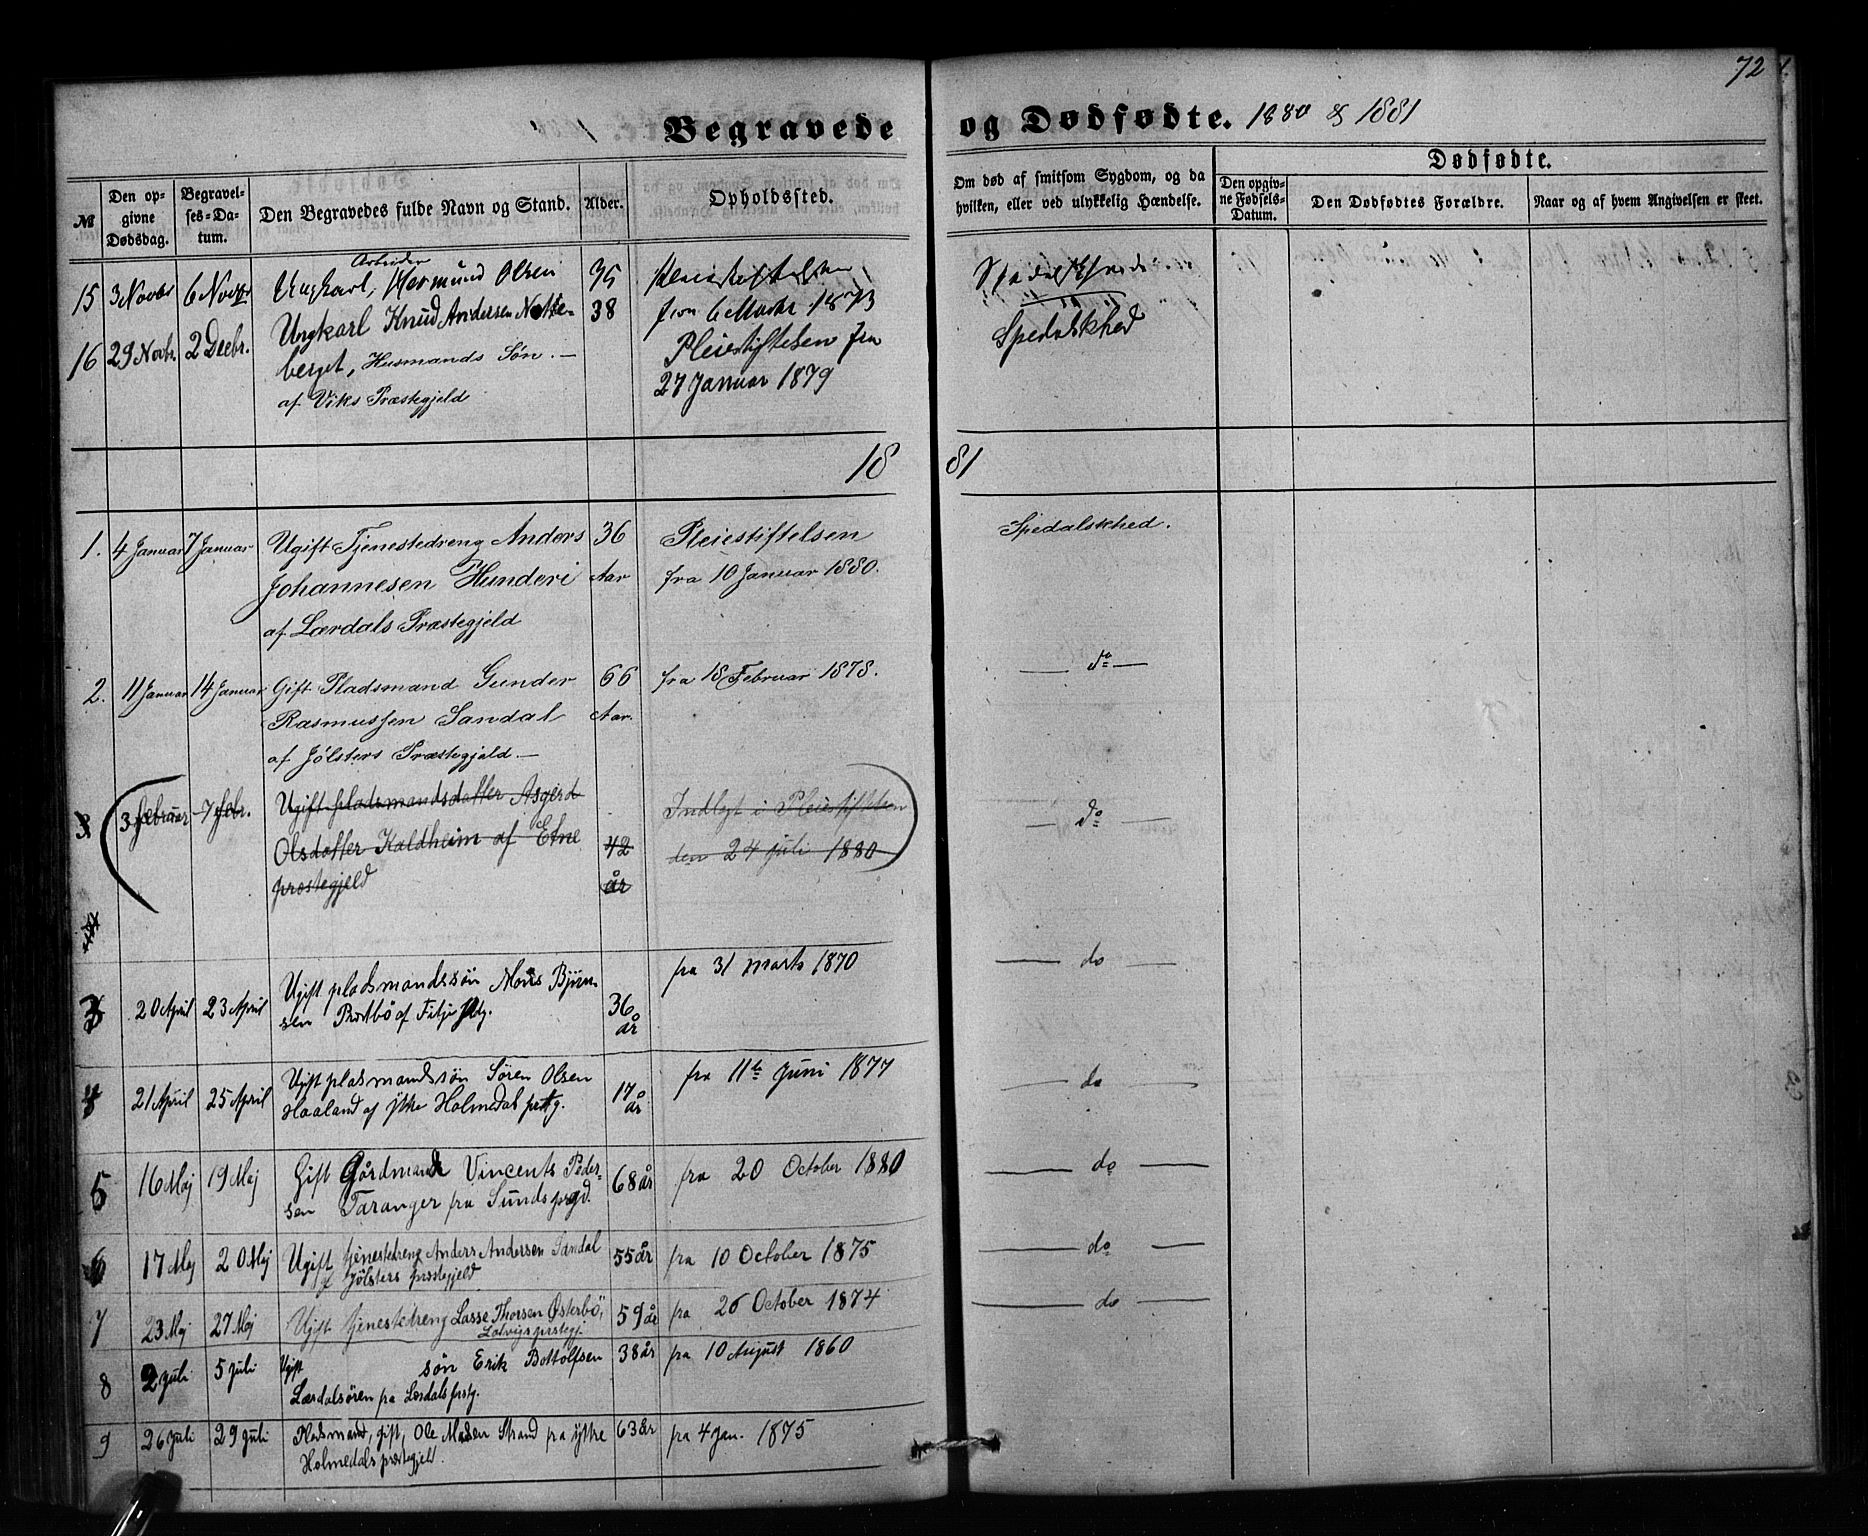 72
Begravede og Dødfødte. 1880 & 1881
№
Den opgivne Dødsdag.
Begravelses-Datum.
Den Begravedes fulde Navn og Stand.
Alder.
Opholdssted.
Om død af smitsom Sygdom, og da hvilken, eller ved ulykkelig Hændelse.
Dødfødte.
Den opgivne Fødsels-Datum.
Den Dødfødtes Forældre.
Naar og af hvem Angivelsen er skeet.
Arbeider
15 3 Novbr 6 Novbr Ungkarl, Hermund Olsen 35 Pleiestiftelsen Spedalskhed
fra 6 Marts 1873
16 29 Novbr. 2 Decbr. Ungkarl Knud Andersen 38 Pleiestiftelsen fra Spedalskhed
berget, Husmands Søn. — 27 Januar 1879
af Viks Præstegjeld
1881
1. 4 Januar 7 Januar Ugift Tjenestedreng Anders 36 Pleiestiftelsen Spedalskhed.
Johannesen Hunderi Aar fra 10 Januar 1880.
af Lærdals Præstegjeld
2. 11 Januar 14 Januar Gift Pladsmand Gunder 66 fra 18 Februar 1878. — do —
Rasmussen Sandal Aar.
af Jølsters Præstegjeld. —
3 3 februar 7 febr. Ugift pladsmandsdatter Asgerd Indlagt i Pleiestiftelsen — do —
Olsdatter Kaldheim af Etne 42 den 24 juli 1880
præstegjeld år
3 20 April 23 April Ugift pladsmandssön Mons Byörn- 36 fra 31 marts 1870 — do —
sen af Fitje år
4 21 April 25 April Ugift pladsmandssön Sören Olsen 17 fra 11te Juni 1877 — do —
Haaland af Ytre Holmedal prstg. år
5 16 Maj 19 Maj Gift Gårdmand Vincents Peder- 68 år fra 20 October 1880 — do —
sen Taranger fra Sunds prgd.
6 17 Maj 20 Maj Ugift tjenestedreng Anders Andersen Sandal 55 år fra 10 October 1875 — do —
af Jölsters præstegjeld
7 23 Maj 27 Maj Ugift tjenestedreng Lasse Thorsen Österbö, 59 år fra 26 October 1874 — do —
Ladvigs prstegj.
8 2 juli 5 juli Ugift sön Erik Bottolfsen 38 år fra 10 August 1860
Lærdalsören fra Lærdals prstg.
9 26 juli 29 juli Pladsmand, gift, Ole Madsen Strand fra ytre 63 år fra 4 jan. 1875
Holmedals præstegjeld.